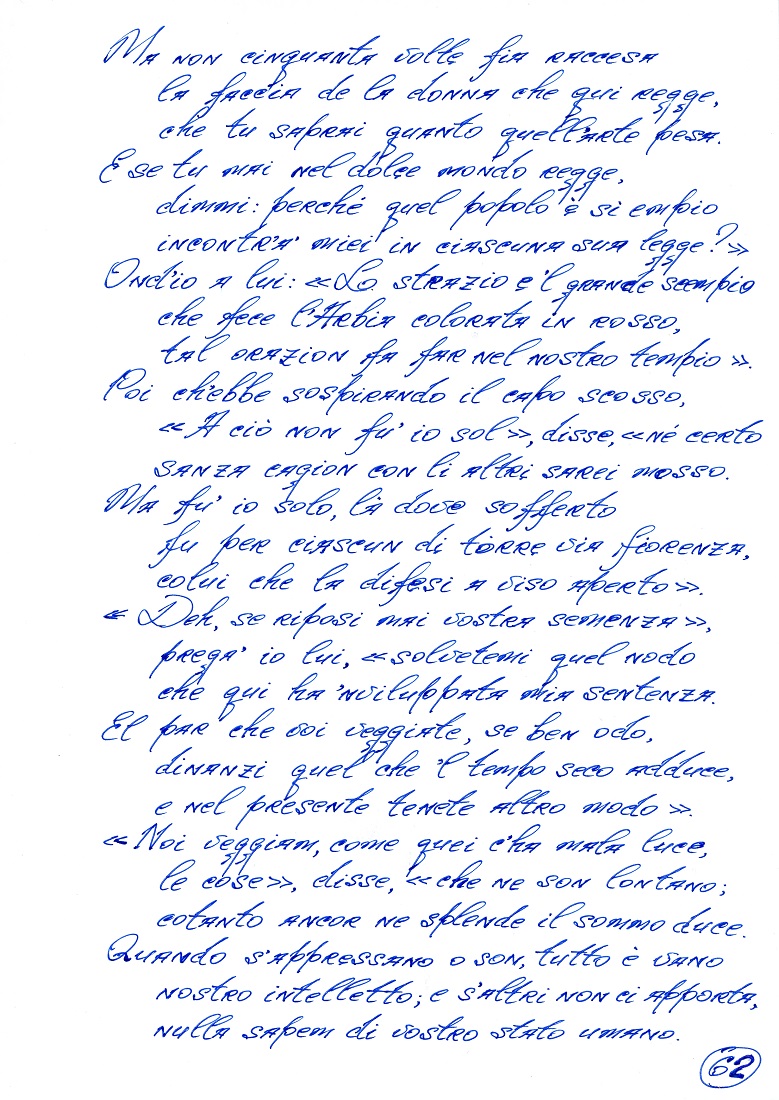 Ma non cinquanta volte fia raccesa
la faccia de la donna che qui regge,
che tu saprai quanto quell'arte pesa.
E se tu mai nel dolce mondo regge,
dimmi: perché quel popolo è sì empio
incontr'a' miei in ciascuna sua legge?»
Ond'io a lui: «Lo strazio e 'l grande scempio
che fece l'Arbia colorata in rosso,
tal orazion fa far nel nostro tempio».
Poi ch'ebbe sospirando il capo scosso,
«A ciò non fu' io sol», disse, «né certo
sanza cagion con li altri sarei mosso.
Ma fu' io solo, là dove sofferto
fu per ciascun di tòrre via Fiorenza,
colui che la difesi a viso aperto».
«Deh, se riposi mai vostra semenza»,
prega' io lui, «solvetemi quel nodo
che qui ha 'nviluppata mia sentenza.
El par che voi veggiate, se ben odo,
dinanzi quel che 'l tempo seco adduce,
e nel presente tenete altro modo».
«Noi veggiam, come quei c'ha mala luce,
le cose», disse, «che ne son lontano;
cotanto ancor ne splende il sommo duce.
Quando s'appressano o son, tutto è vano
nostro intelletto; e s'altri non ci apporta,
nulla sapem di vostro stato umano.
62